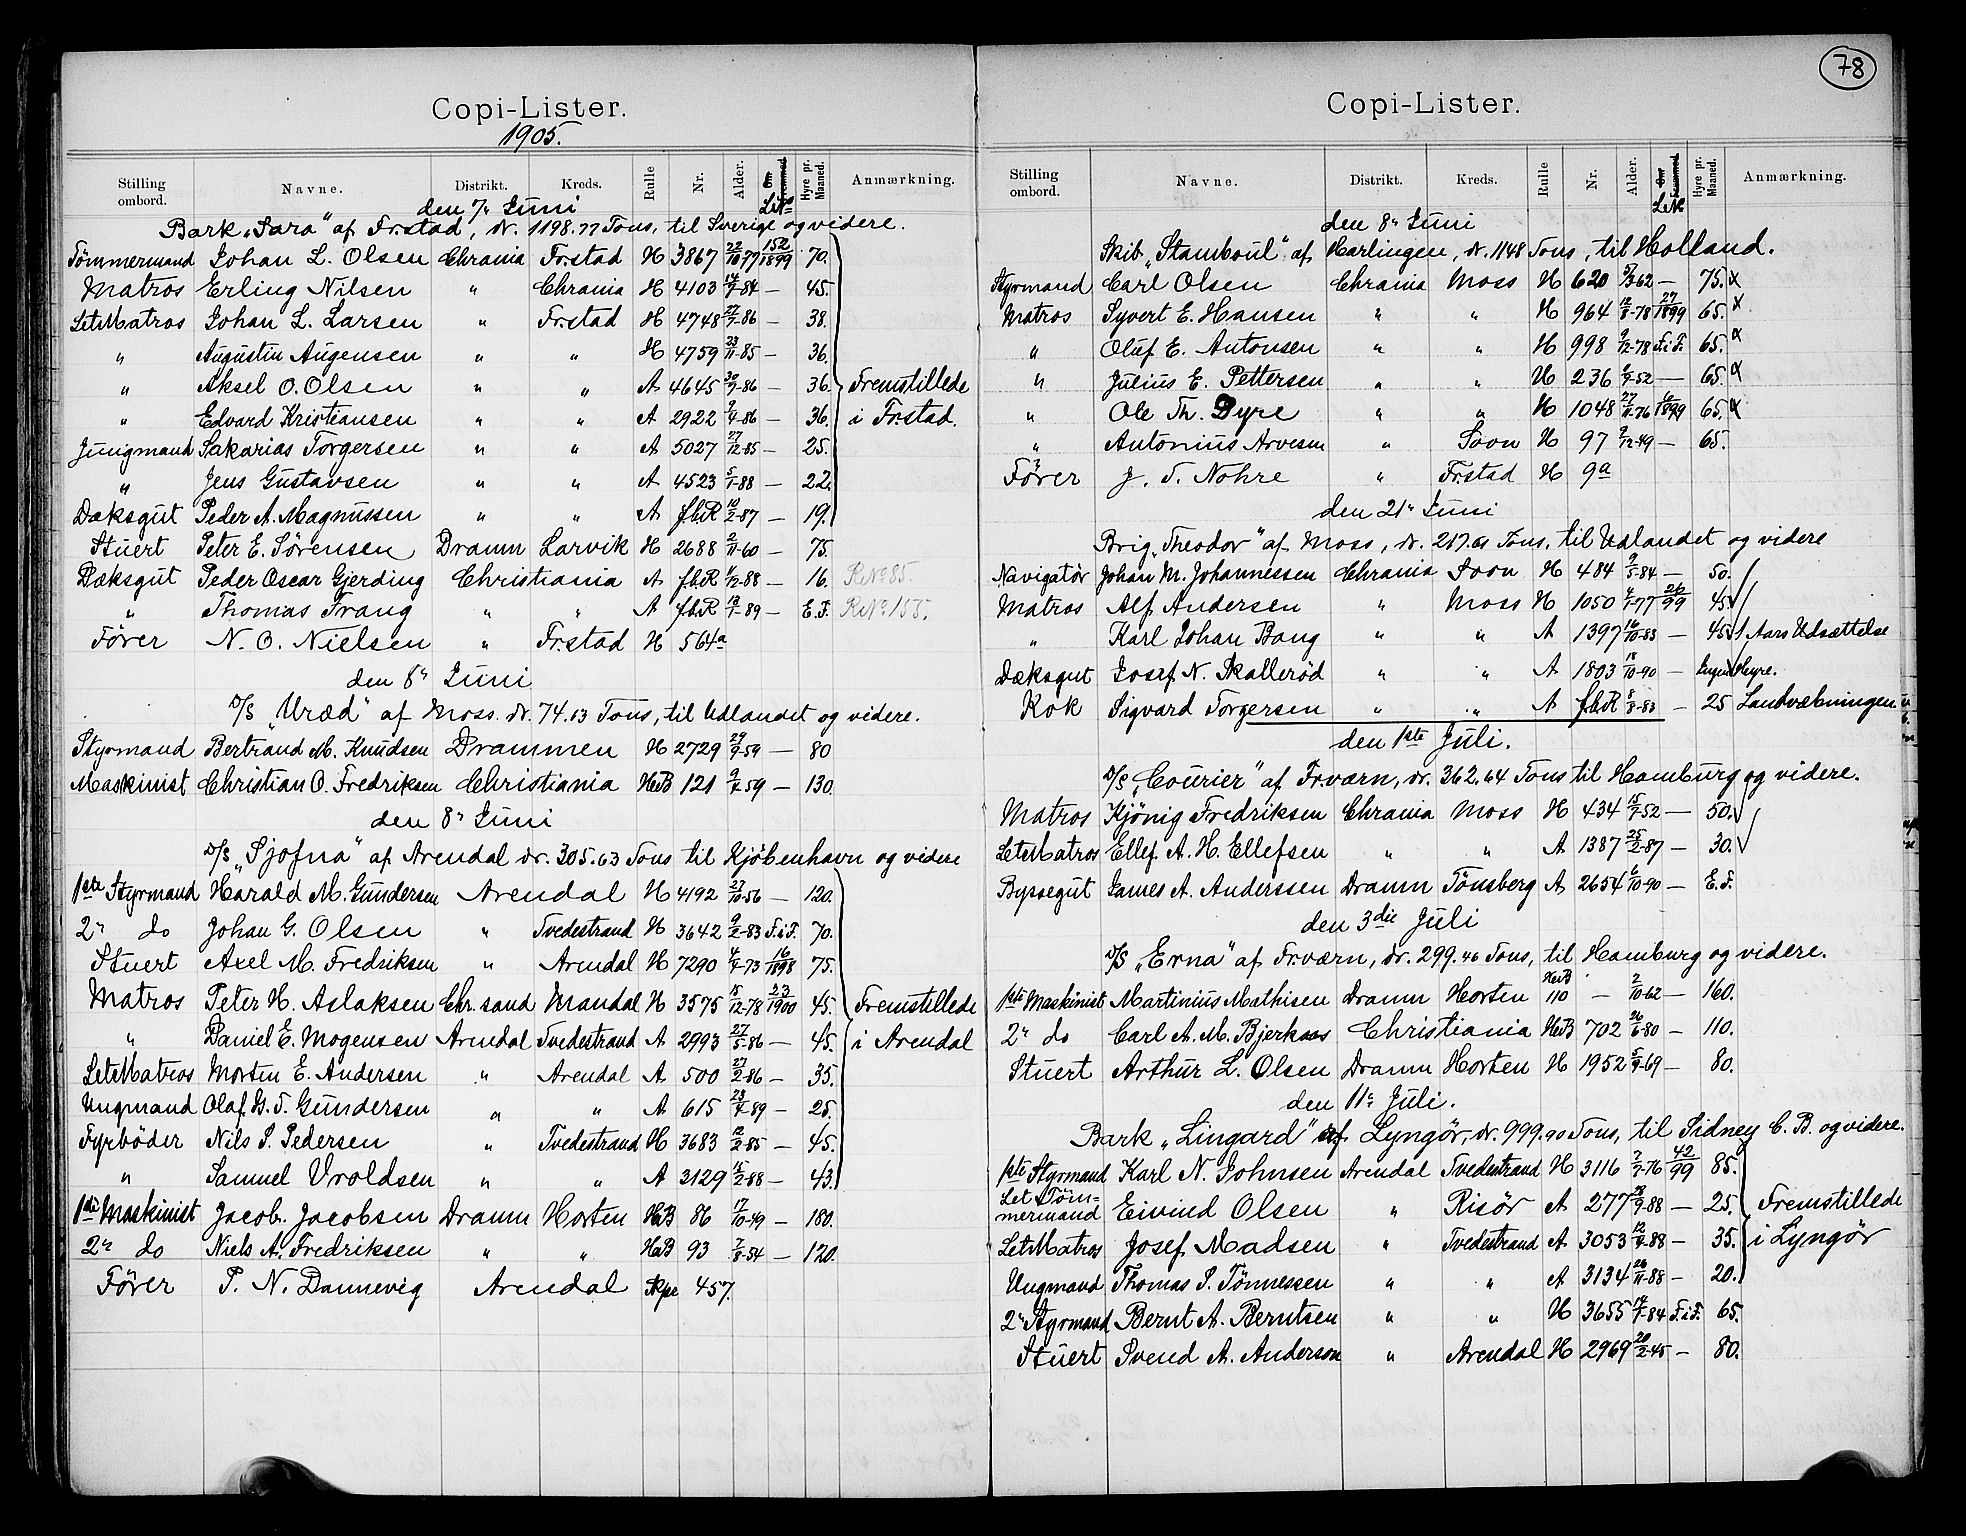 78
Copi-Lister.
1905.
Stilling ombord. Navne. Distrikt. Kreds. Rulle Nr. Alder. Hyre pr. Maaned. Anmærkning.
den 7" Juni
Bark "Sara" af Fr.stad, dr. 1198.77 Tons, til Sverige og videre.
Tømmermand Johan L. Olsen Chrania Fr.stad H 3867 22/10-77 152/1899 70.
Matros Erling Nilsen " Chrania H 4103 14/7-84 — 45.
LetMatros Johan L. Larsen " Fr.stad H 4748 22/7-86 — 38.
" Augustin Augensen " " H 4759 23/11-85 — 36.
" Aksel O. Olsen " " A 4645 30/7-86 — 36. Fremstillede
" Edvard Kristiansen " " A 2922 9/4-86 — 36. i Fr.stad.
Jungmand Sakarias Torgersen " " A 5027 27/12-85 — 25.
" Jens Gustavsen " " A 4523 5/1-88 — 22.
Dæksgut Peder A. Magnussen " " A fbR 12/2-87 — 19.
Stuert Peter E. Sørensen Dramn Larvik H 2688 2/11-60 — 75.
Dæksgut Peder Oscar Gjerding Christiania A fbR 11/12-88 — 16. R.No. 85.
" Thomas Frang " " A fbR 13/1-89 — E.F. R.No. 155.
Fører N. O. Nielsen " Fr.stad H 564a
den 8" Juni
D/S "Uræd" af Moss. dr. 74.13 Tons, til Udlandet og videre.
Styrmand Bertrand M. Knudsen Drammen H 2729 29/9-59 — 80
Maskinist Christian O. Fredriksen Christiania HaB 121 9/4-59 — 130.
den 8" Juni
D/S "Sjofna" af Arendal dr. 305.63 Tons til Kjøbenhavn og videre
1ste Styrmand Harald M. Gundersen Arendal H 4192 27/10-56 — 120.
2" do Johan G. Olsen " Tvedestrand H 3642 9/2-83 F.i.F. 70.
Stuert Axel M. Fredriksen " Arendal H 7290 4/4-73 16/1898 75.
Matros Peter H. Aslaksen Chr.sand Mandal H 3575 15/12-78 23/1900 45. Fremstillede
" Daniel E. Mogensen Arendal Tvedestrand A 2993 27/5-86 — 45. i Arendal
LetMatros Morten E. Andersen " Arendal A 500 27/2-86 — 35.
Ungmand Olaf G. T. Gundersen " " A 615 23/4-89 — 25.
Fyrbøder Nils P. Pedersen " Tvedestrand H 3683 12/2-85 — 45.
" Samuel Vroldsen " " A 3129 15/2-88 — 43.
1ste Maskinist Jacob Jacobsen Dramn Horten HaB 86 17/10-49 — 180.
2" do Niels A. Fredriksen " " HaB 93 7/8-54 — 120.
Fører P. N. Dannevig Arendal Skpr 457.
Copi-Lister.
Stilling ombord. Navne. Distrikt. Kreds. Rulle Nr. Alder. Hyre pr. Maaned. Anmærkning.
den 8" Juni
Skib "Stamboul" af Harlingen, dr. 1148 Tons, til Holland.
Styrmand Carl Olsen Chrania Moss H 620 5/3-62 — 75.
Matros Syvert E. Hansen " " H 964 12/8-78 27/1899 65.
" Oluf E. Antonsen " " H 998 9/12-78 F.i.F. 65.
" Julius E. Pettersen " " H 236 6/9-52 — 65.
" Ole Th. Dyre " " H 1048 27/11-76 6/1899 65.
" Antonius Arvesen " Soon H 97 9/12-49 — 65.
Fører J. T. Nohre " Fr.stad H 9a
den 21" Juni
Brig "Theodor" af Moss, dr. 217.61 Tons, til Udlandet og videre
Navigatør Johan M. Johannessen Chrania Soon H 484 9/5-84 — 50.
Matros Alf Andersen " Moss H 1050 4/1-77 26/99 45
" Karl Johan Bang " " A 1397 16/10-83 — 45 1 Aars Udsættelse
Dæksgut Josef N. Skallerød " " A 1803 18/10-90 — Ingen Hyre.
Kok Sigvard Torgersen " " A fbR 8/8-83 — 25 Landværbningen
den 1ste Juli.
D/S "Courier" af Fr.værn, dr. 362.64 Tons til Hamburg og videre.
Matros Kjønig Fredriksen Chrania Moss H 434 15/7-52 — 50.
LetMatros Ellef A. H. Ellefsen " " A 1387 25/2-87 — 30.
Byssegut James A. Anderssen Dramn Tønsberg A 2654 6/10-90 — E.F.
den 3die Juli
D/S "Erna" af Fr.værn, dr. 299.46 Tons, til Hamburg og videre.
1ste Maskinist Martinius Mathisen Dramn Horten HaB 110 — 2/10-62 — 160.
2" do Carl A. M. Bjerkaas Christiania HaB 702 26/6-80 — 110.
Stuert Arthur L. Olsen Dramn Horten H 1952 5/9-69 — 80.
den 11" Juli.
Bark "Lingard" af Lyngør, dr. 999.90 Tons, til Sidney C. B. og videre.
1ste Styrmand Karl N. Johnsen Arendal Tvedestrand H 3116 7/7-76 42/99 85.
Let Tømmermand Eivind Olsen " Risør A 277 28/9-88 — 25. Fremstillede
LetMatros Josef Madsen " Tvedestrand A 3053 12/4-88 — 35. i Lyngør
Ungmand Thomas P. Tønnessen " " A 3134 26/11-88 — 20.
2" Styrmand Bernt A. Berntsen " " H 3655 14/7-84 F.i.F. 65.
Stuert Svend A. Anderson " Arendal H 2969 20/2-45 — 80.